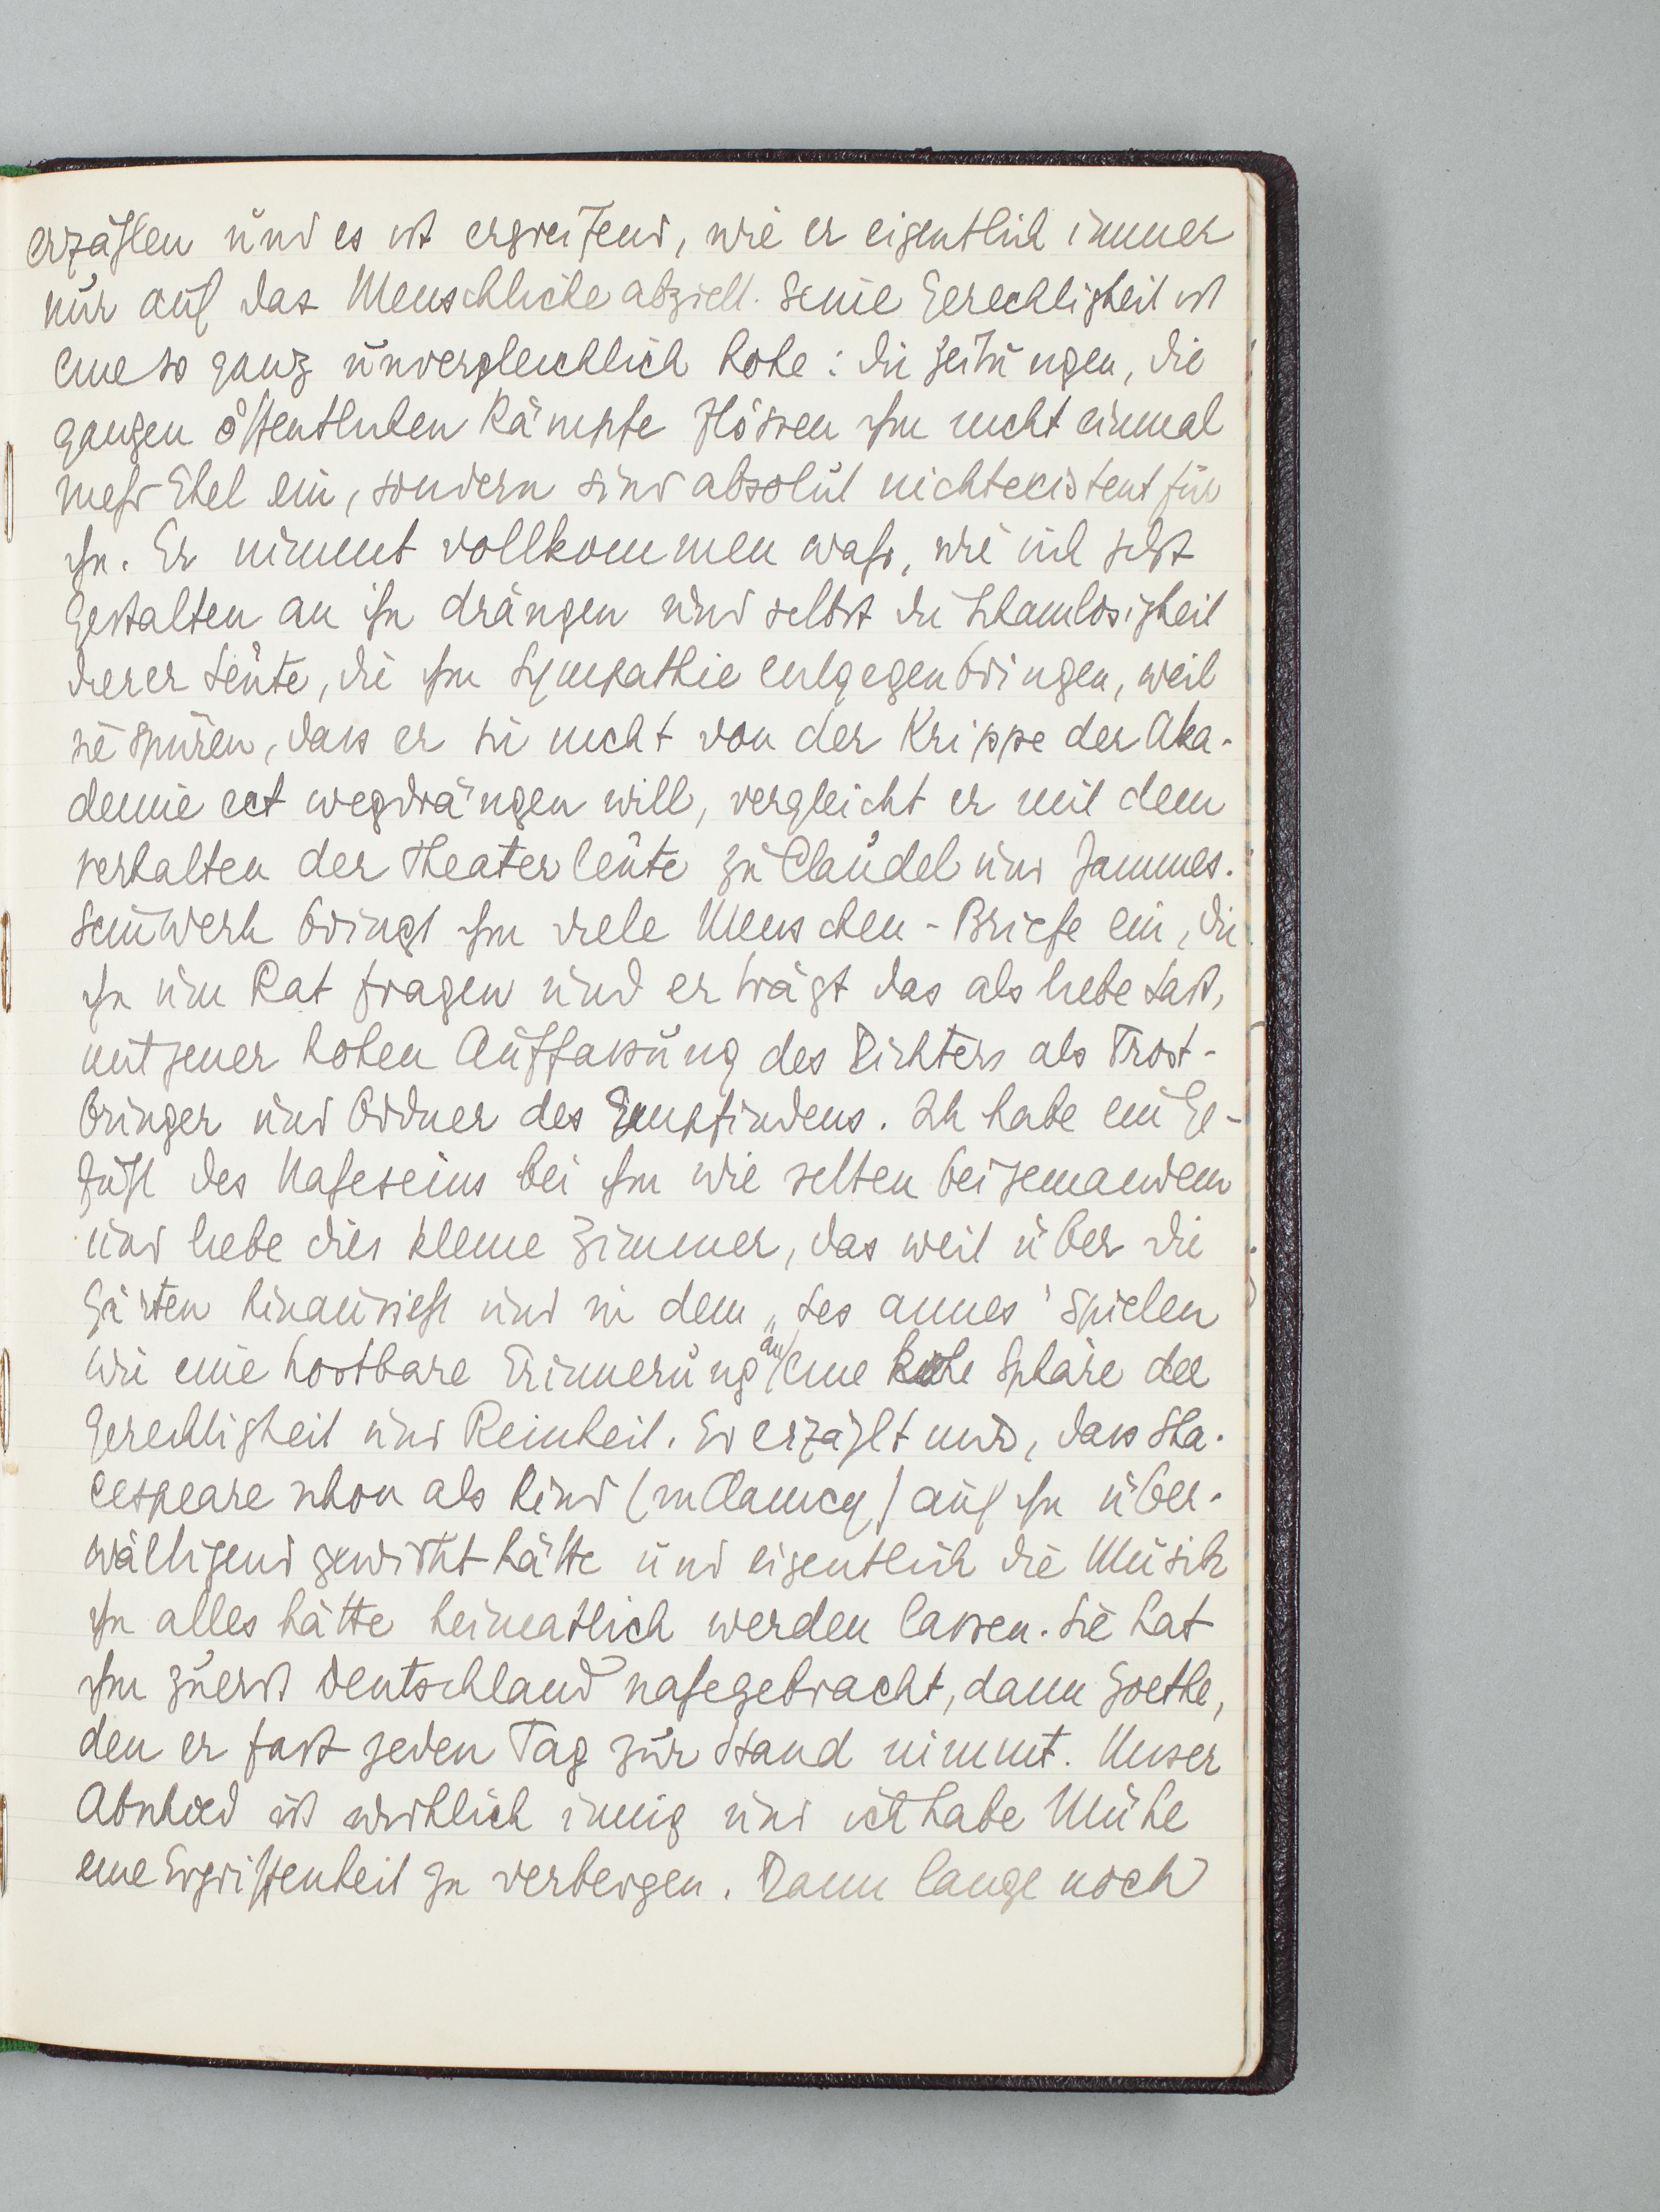 erzählen und es ist ergreifend, wie er eigentlich immer
nur auf das Menschliche abzielt. Seine Gerechtigkeit ist
eine so ganz unvergleichlich hohe: die Zeitungen, die
ganzen öffentlichen Kämpfe flössen ihm nicht einmal
mehr Ekel ein, sondern sind absolut nichtexistent für
ihn. Er nimmt vollkommen wahr, wie sich jetzt
Gestalten an ihn drängen und selbst die Schamlosigkeit
dieser Leute, die ihm Sympathie entgegenbringen, weil
sie spüren, dass er sie nicht von der Krippe der Aka-
demie ect wegdrängen will, vergleicht er mit dem
Verhalten der Theaterleute zu Claudel und Jammes.
Sein Werk bringt ihm viele Menschen-Briefe ein, die
ihn um Rat fragen und er trägt das als liebe Last,
mit jener hohen Auffassung des Dichters als Trost-
bringer und Ordner des Empfindens. Ich habe ein Ge-
fühl des Naheseins bei ihm wie selten bei jemandem
und liebe dies kleine Zimmer, das weit über die
Gärten hinaussieht und in dem „Les ames" spielen
wie eine kostbare Erinnerung an eine hohe Sphäre der
Gerechtigkeit und Reinheit. Er erzählt mir, dass Sha-
cespeare schon als Kind (in Clamecy) auf ihn über-
wältigend gewirkt hätte und eigentlich die Musik
ihn alles hätte heimatlich werden lassen. Sie hat
ihm zuerst Deutschland nahegebracht, dann Goethe,
den er fast jeden Tag zur Hand nimmt. Unser
Abschied ist wirklich innig und ich habe Mühe
eine Ergriffenheit zu verbergen. Dann lange noch